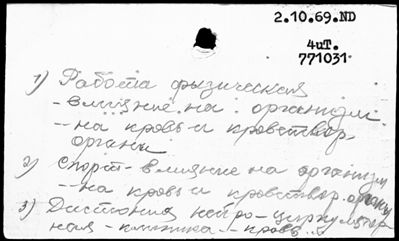 2.10.69.ND
4иТ.
771031
1) Работа физическая
- влияние на организм
- на кровь и кроветвор.
органы
2) Спорт - влияние на организм
- на кровь и кроветвор. органы
3) Дистония нейро-циркулятор
ная - клиника - кровь